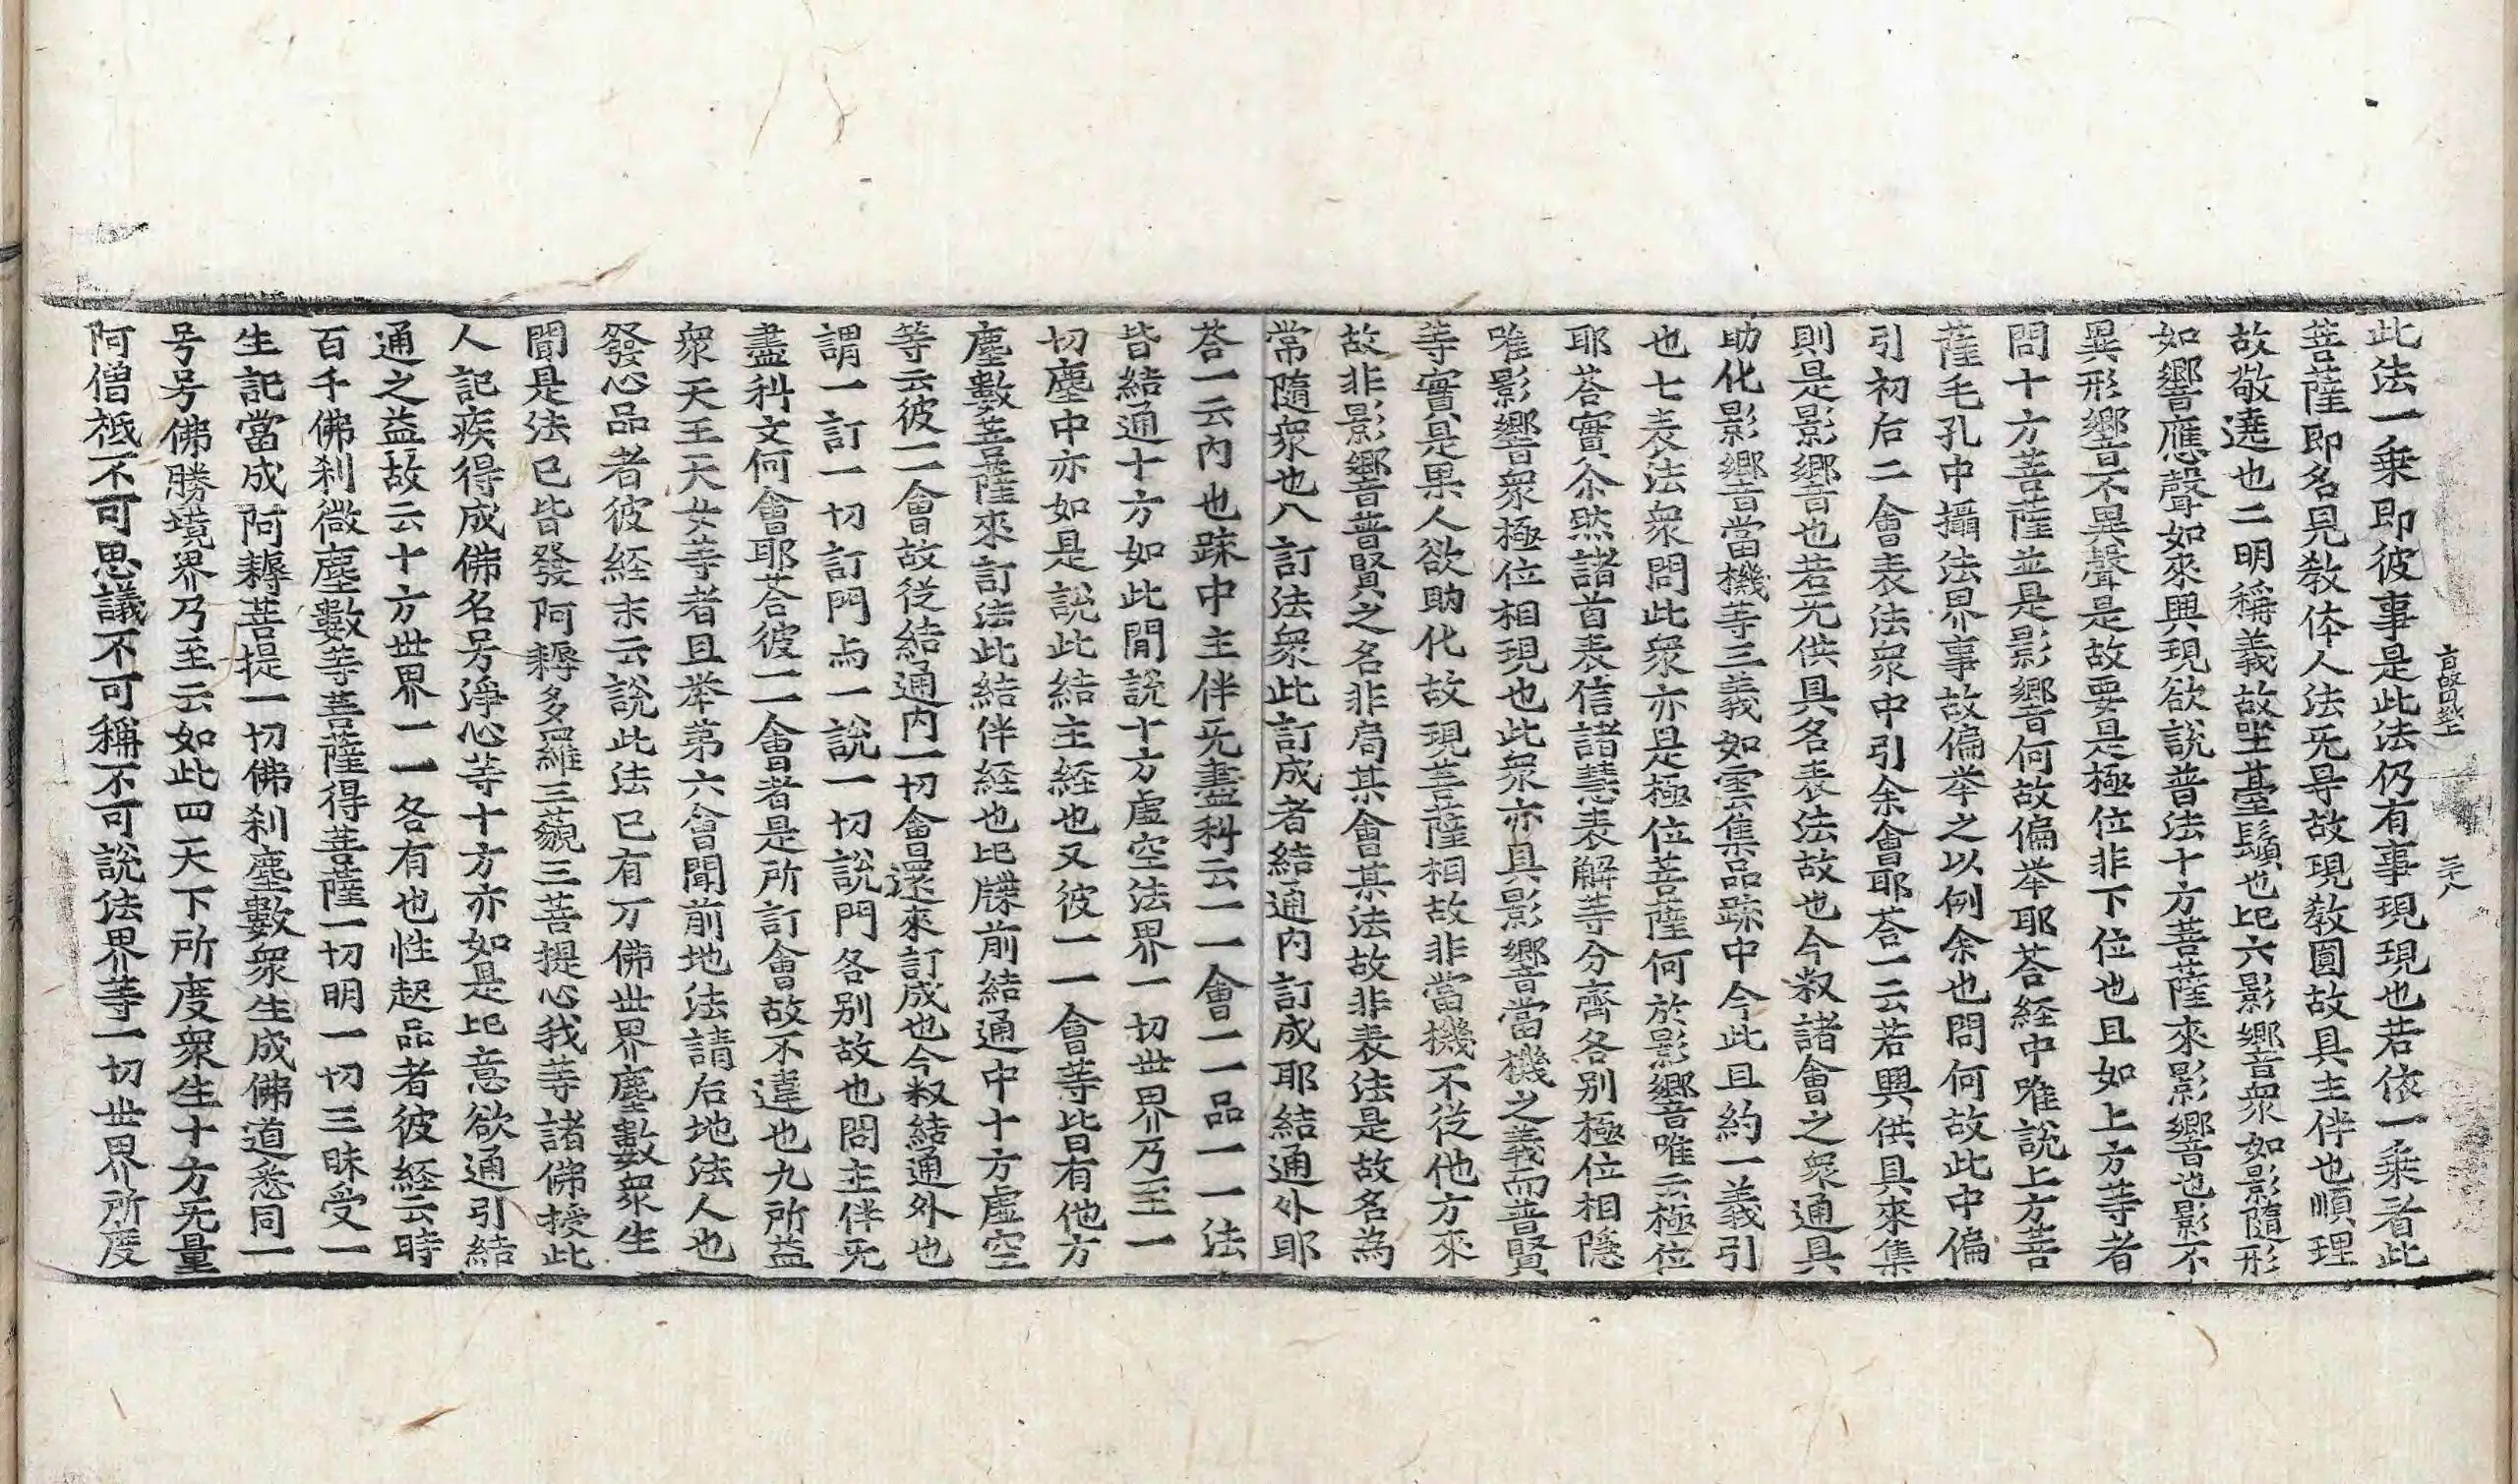 此法一乗即彼事是此法仍有事現現也若依一乗者此
菩薩即名見教体人法旡导故現教圓故具主伴也順理
故敬遶也二明稱義故坐臺鬚也㠯六影響衆如影隨形
如響應聲如來興現欲說普法十方菩薩來影響也影不
異形響不異聲是故要是極位非下位也且如上方等者
問十方菩薩並是影響何故偏举耶荅経中唯說上方菩
薩毛孔中攝法界事故偏举之以例余也問何故此中偏
引初后二會表法衆中引余會耶荅一云若興供具來集
則是影響也若旡供具名表法故也今叙諸會之衆通具
助化影響當機等三義如雲集品䟽中今此且約一義引
也七表法衆問此衆亦是極位菩薩何於影響唯云極位
耶荅實尒然諸首表信諸慧表解等分齊各別極位相隱
唯影響衆極位相現也此衆亦具影響當機之義而普賢
等實是果人欲助化故現菩薩相故非當機不從他方來
故非影響普賢之名非局某會某法故非表法是故名為
常隨衆也八訂法衆此訂成者結通內訂成耶結通外耶
荅一云內也䟽中主伴旡盡科云一一會一一品一一法
皆結通十方如此閒說十方虛空法界一切世界乃至一
切塵中亦如是說此結主経也又彼一一會等皆有他方
塵數菩薩來訂法此結伴経也㠯牒前結通中十方虛空
等云彼一一會故從結通內一切會還來訂成也今叙結通外也
謂一訂一切訂門与一說一切說門各別故也問主伴旡
盡科文何會耶荅彼一一會者是所訂會故不違也九所益
衆天王天女等者且举第六會聞前地法請后地法人也
發心品者彼経末云說此法已有万佛世界塵數衆生
聞是法已皆發阿耨多羅三藐三菩提心我等諸佛授此
人記疾得成佛名号淨心等十方亦如是㠯意欲通引結
通之益故云十方世界一一各有也性起品者彼経云時
百千佛刹微塵數等菩薩得菩薩一切明一切三昧受一
生記當成阿耨菩提一切佛刹塵數衆生成佛道悉同一
号号佛勝境界乃至云如此四天下所度衆生十方旡量
阿僧祇不可思議不可稱不可說法界等一切世界所度